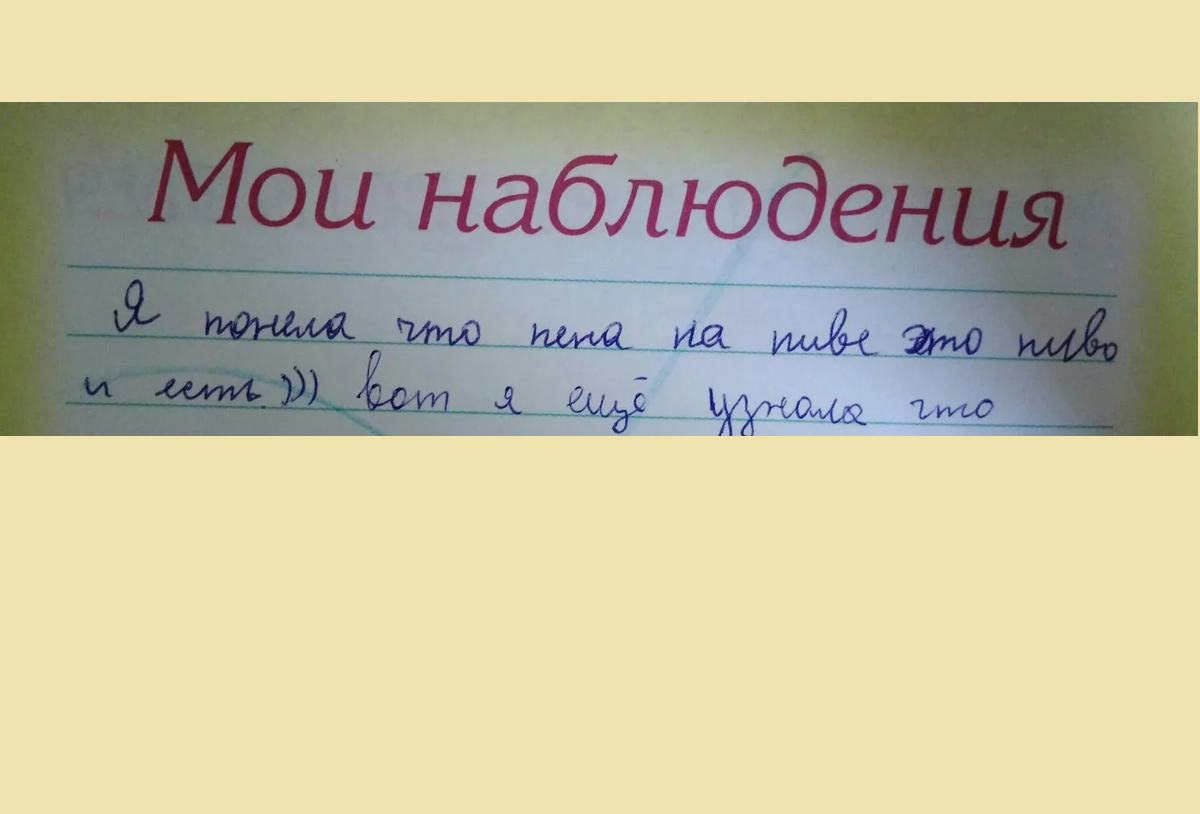 Мои наблюдения
Я понела что пена на пиве это пиво
и есть.))) вот я ещё узнала что